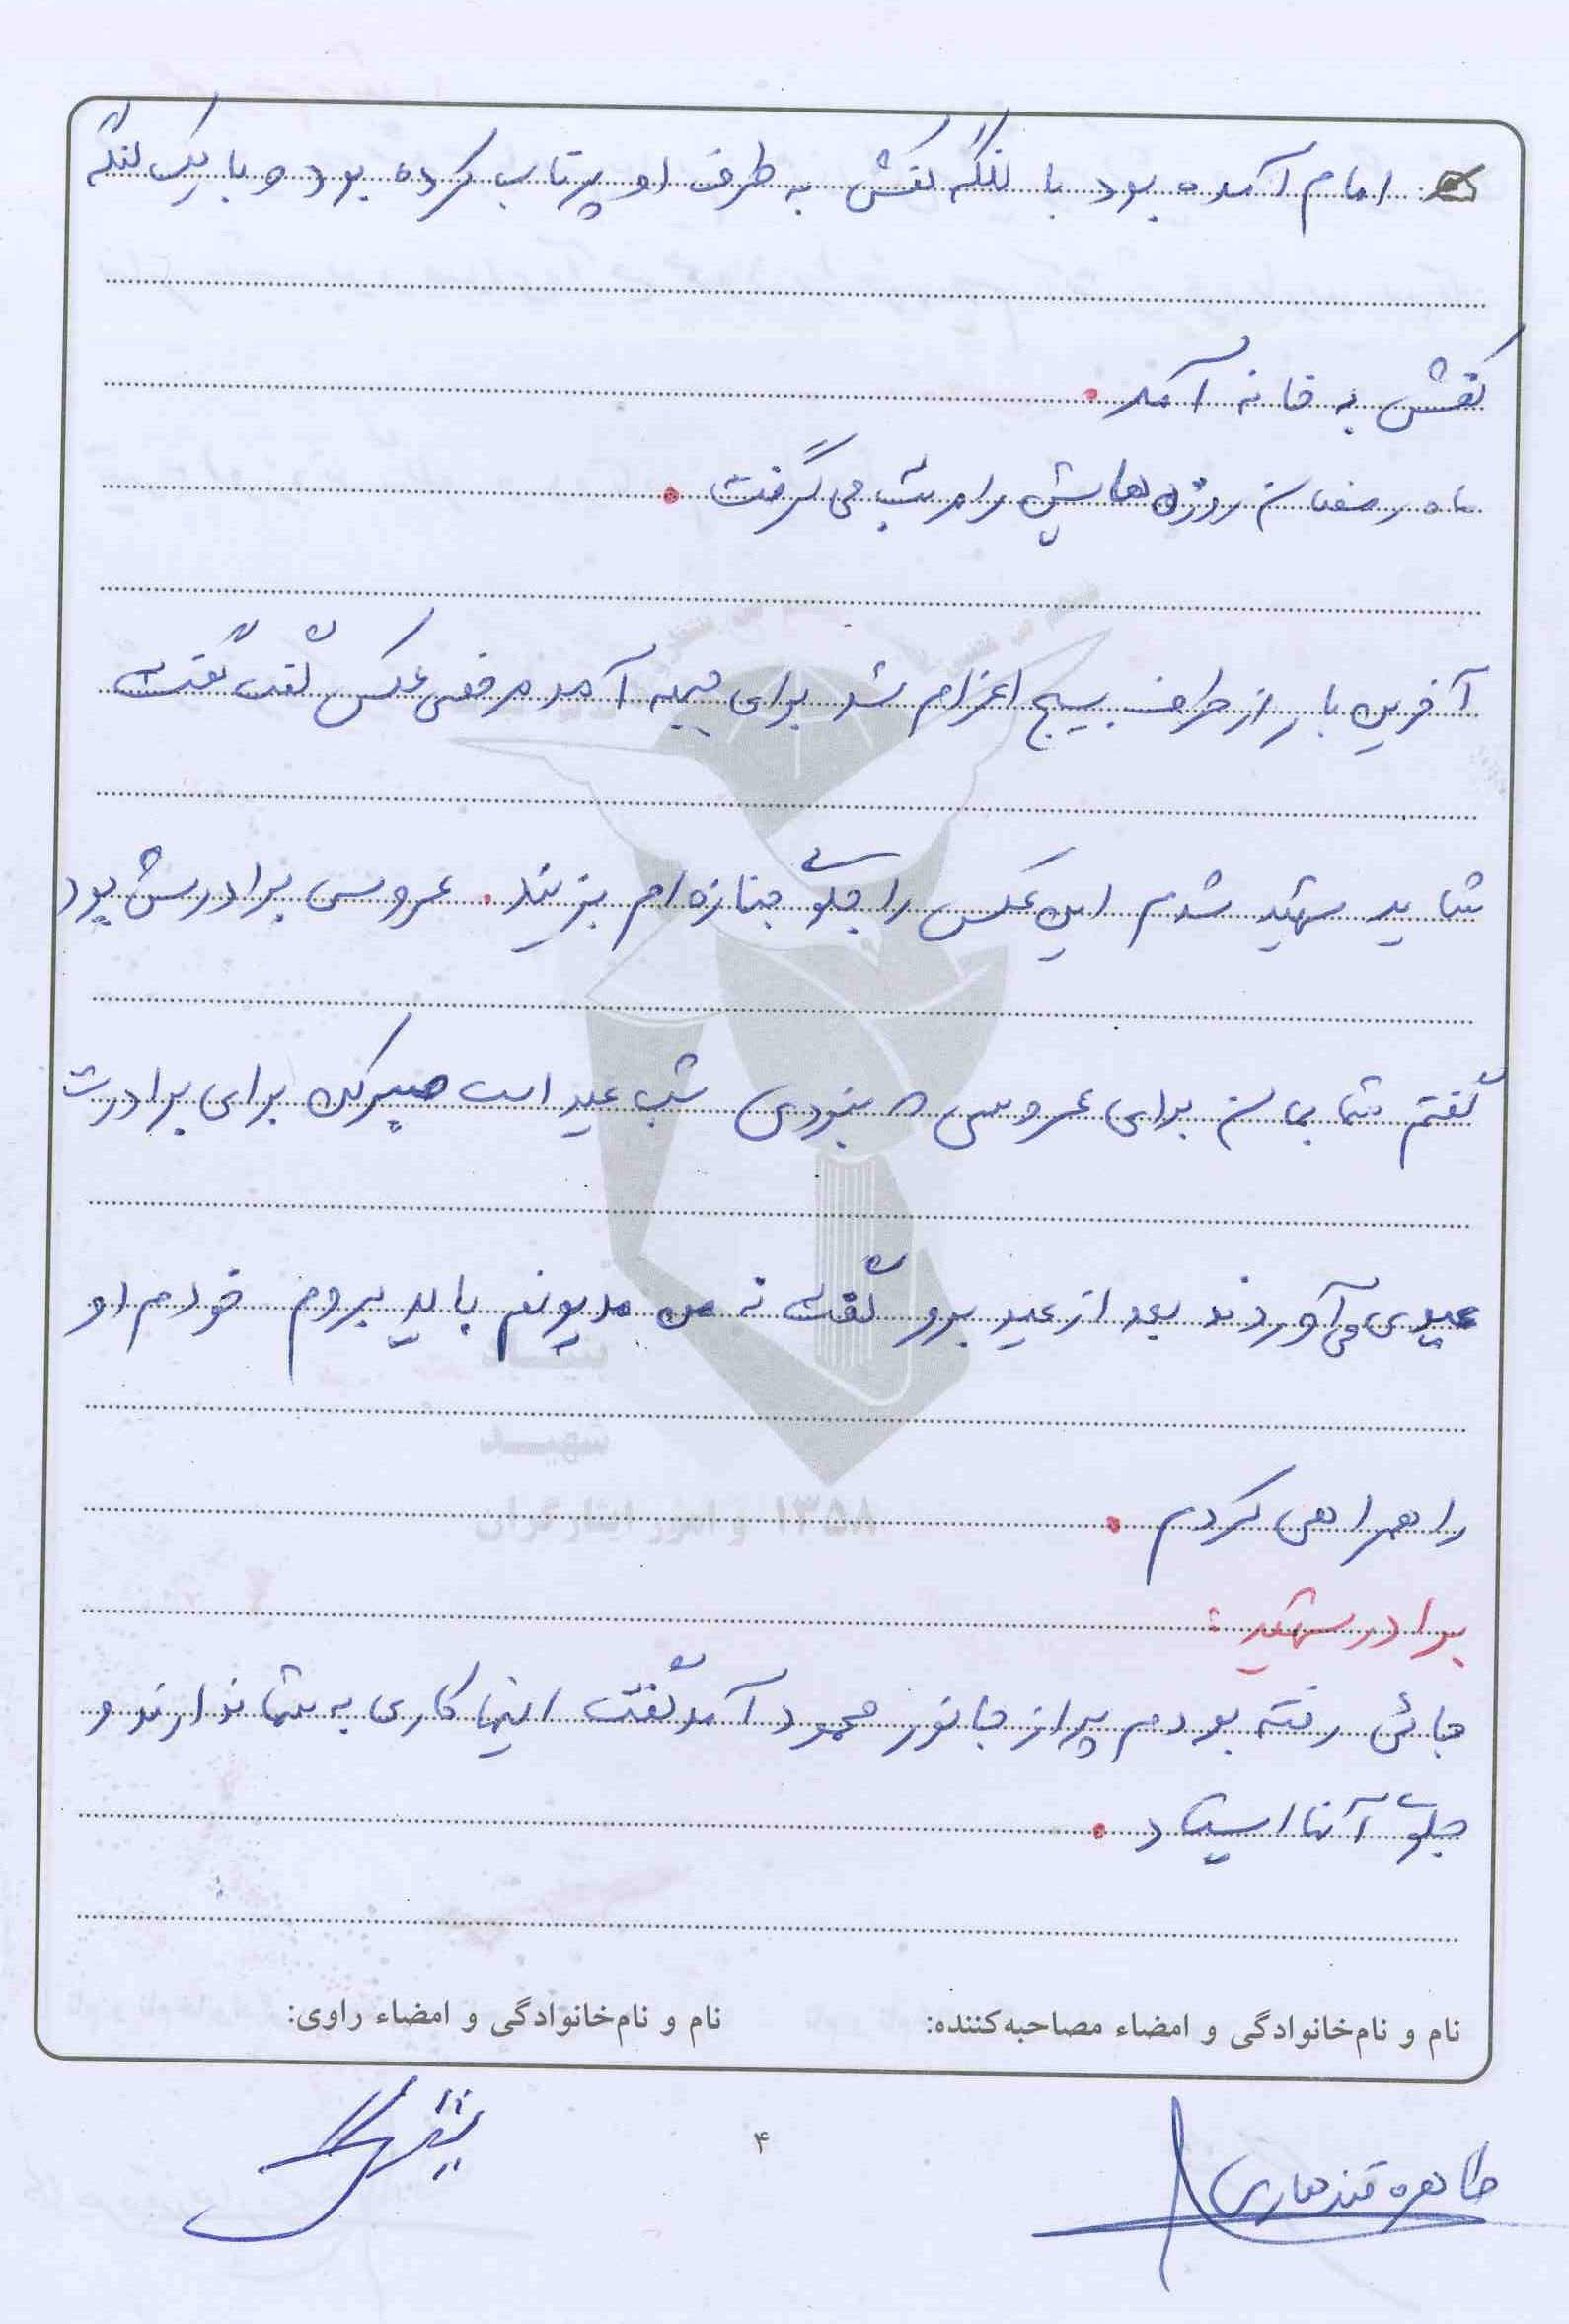 امام آمده بود با لنگه کفش به طرف او پرتاب کرده بود و با یک لنگه
کفش به خانه آمد.
ماه رمضان روزه هایش را مرتب می گرفت.
آخرین بار از طرف بسیج اعزام شد برای جبهه آمد مرخصی عکس گفت گفت
شاید شهید شدم این عکس را جلوی جنازه ام بزنید. عروسی برادرش بود
گفتم شما بمان برای عروسی نبردی شب عید است صبر کن برای برادرت
عیدی می آورند بعد از عید برو گفت نه من مدیونم باید بروم خودم او
را همراهی کردم.
برادر شهید:
جائی رفته بودم پر از جانور محمود آمد گفت اینها کاری به شما ندارند و
جلوی آنها ایستاد.
نام و نام‌خانوادگی و امضاء مصاحبه‌کننده:
نام و نام‌خانوادگی و امضاء راوی:
طاهره قندهاری
۴
بنیاد
شهید
و امور ایثارگران ۱۳۵۸